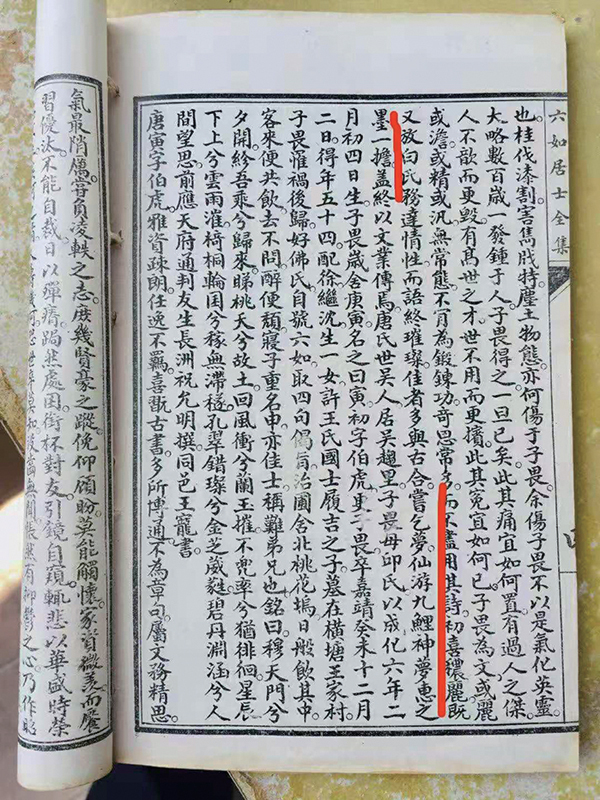 六如居士全集
也。桂伐漆割害雋戕特塵土物態亦何傷于子畏余傷子畏不以是氣化英靈
大略數百歲一發鍾于人子畏得之一旦已矣此其痛宜如何置有過人之傑
人不歆而更毀有高世之才世不用而更擯此其冤宜如何已子畏為文或麗
或澹或精或汎無常態不肯為鍛鍊功奇思常多而不盡用其詩初喜穠麗既
又放白氏務達情性而語終璀璨佳者多與古合嘗乞夢仙游九鯉神夢惠之
墨一擔蓋終以文業傳焉唐氏世吳人居吳趨里子畏母邱氏以成化六年二
月初四日生子畏歲舍庚寅名之曰寅初字伯虎更子畏卒嘉靖癸未十二月
二日得年五十四配徐繼沈生一女許王氏國士履吉之子墓在橫塘王家村
子畏罹禍後歸好佛氏自號六如取四句偈旨治圃舍北桃花塢日般飲其中
客來便共飲去不問醉便頹寢子重名申亦佳士稱難弟兄也銘曰穆天門兮
夕開紛吾乘兮歸來睇桃夭兮故土回風衝兮蘭玉摧不兜率兮猶徘徊星辰
下上兮雲雨漼椅桐輪囷兮稼無滯穟孔翠錯璨兮金芝葳蕤碧丹淵涵兮人
間望思前應天府通判友生長洲祝允明撰同邑王寵書
唐寅字伯虎雅資疎朗任逸不羈喜翫古書多所博通不為章句屬文務精思
氣最陗厲嘗負凌軼之志庶幾賢豪之蹤俛仰顧盼莫能觸懷家資微羨而屢
習優汰不能自裁日以殫瘠踢然處困銜杯對友引鏡自窺輒悲以華盛時榮
無聞悵然有抑鬱之心乃作昭